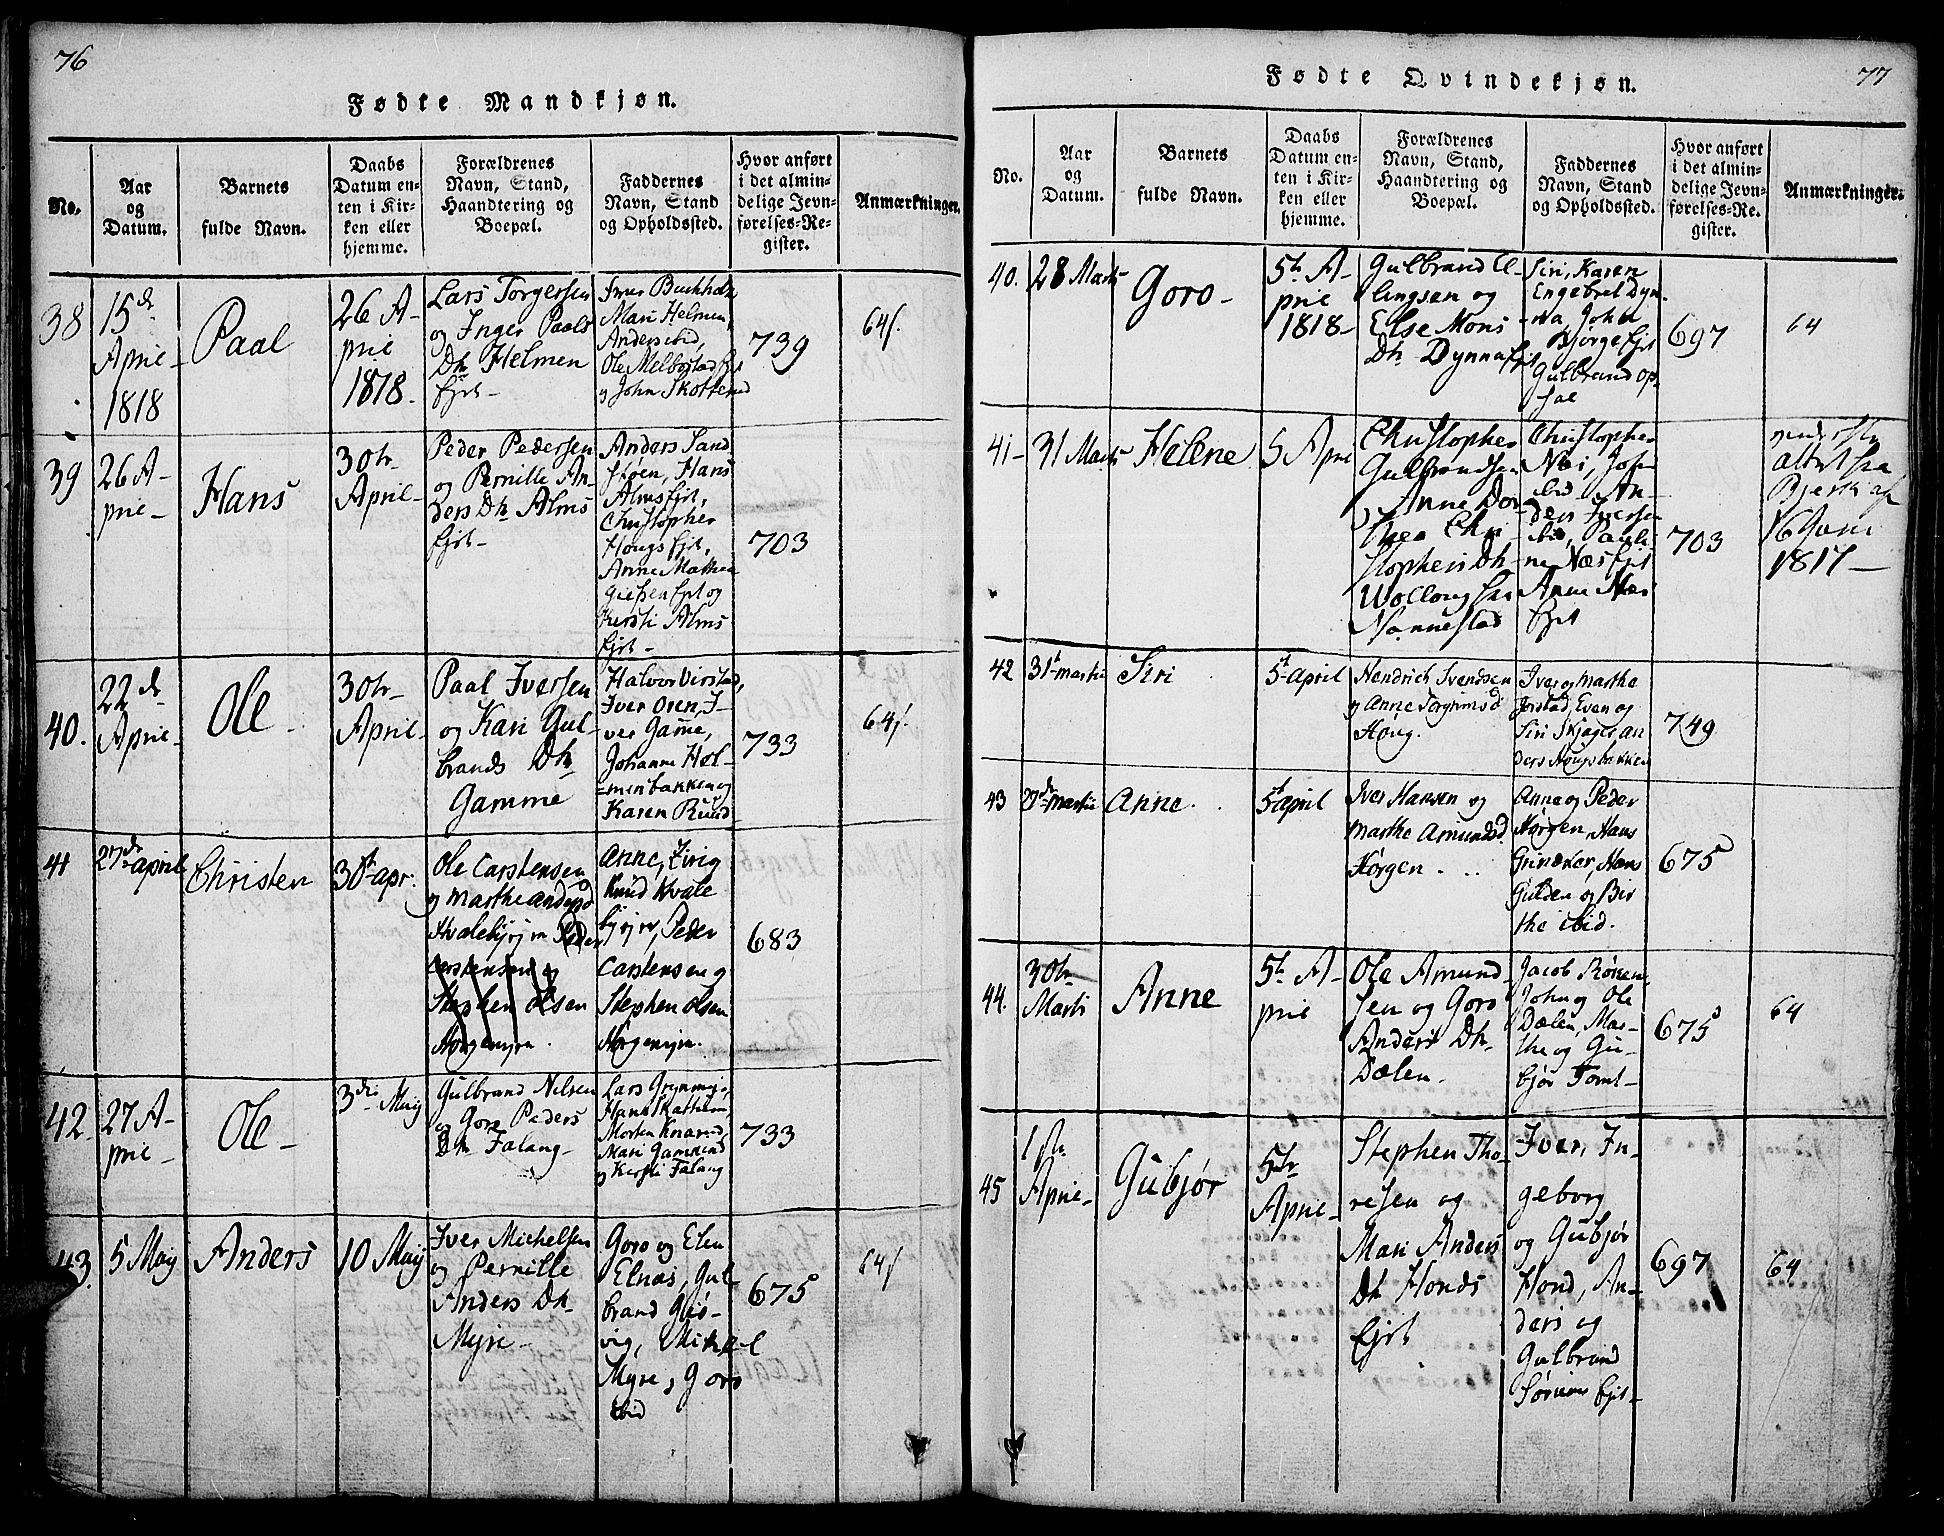 76
Fødte Mandkjøn.
No.
Aar
og
Datum.
Barnets
fulde Navn.
Daabs
Datum en-
ten i Kir-
ken eller
hjemme.
Forældrenes
Navn, Stand,
Haandtering og
Boepæl.
Faddernes
Navn, Stand
og Opholdssted.
Hvor anført
i det almin-
delige Jevn-
førelses-Re-
gister.
Anmærkninger.
38
15de
Aprie
1818
Paal
26 A-
prie
1818.
Lars Torgersen
og Inger Paals
Dh Helmen
Ejet
Iver Buchholz
Mari Helmen,
Anders ibid,
Ole Melbostad Ejet
og John Skotteno
739
64
39
26 A-
prie
Hans
30te
April
Peder Pedersen
og Pernille An-
ders Dh Alms
Ejet
Anders Sand
Hans
Alms Ejet,
Christopher
Hougs Ejet,
Anne Mathea
Ejet og
Kersti Alms
Ejet
703
40.
22de
Aprie
Ole
30te
April
Paal Iversen
og Kari Gul-
brands Dh
Gamme
Halvor Virstad,
Iver Oren, I-
ver Gamme,
Johanne Hol-
menbakken og
Karen Ruud
733
64
41
27de april
Christen
30te apr.
Ole Carstensen
og Marthe
Peder
Carstensen og
Stephen Olsen
Anne,
Knud Kvale
Peder
Carstensen og
Stephen Olsen
683
42.
27 A-
prie
Ole
3die Maij
Gulbrand Nilsen
og Goro Peders
Dh Falang
Lars
Morten Knarud,
Mari
og Kersti Falang
733
43.
5 Maij
Anders
10 Maij
Iver Michelsen
og Pernille
Anders Dh
Myre
Goro og Elen
Elnæs, Gul-
brand Gis-
vig, Mikkel
Myre, Goro
ibid
675
64
77
Fødte Qvindekjøn.
No.
Aar
og
Datum.
Barnets
fulde Navn.
Daabs
Datum en-
ten i Kir-
ken eller
hjemme.
Forældrenes
Navn, Stand,
Haandtering og
Boepæl.
Faddernes
Navn, Stand
og Opholdssted.
Hvor anført
i det almin-
delige Jevn-
førelses-Re-
gister.
Anmærkninger.
40.
28 Marts
Goro
5te A-
prie
1818
Gulbrand El-
lingsen og
Else Mons
Dh Dynna Ejet
Siri, Karen
Engebret Dyn-
na, John
Bjørge Ejet
Gulbrand Op-
sae
697
64
41
31 Marts
Helene
5 Aprie
Christopher
Gulbrandsen
og Anne Dor-
thea Chri-
stophers Dh
fra
Nannestad
Christopher
ibid An-
ders Iversen
ibid, Pauli-
ne Næs Ejet
Anne Næs
Ejet
703
fra
af
16 Juni
1817
42
31te martii
Siri
5te april
Hendrich Svendsen
og Anne Torgrimsd
Høug.
Iver og Marthe
Jorstad, Even og
Siri An
ders Hougsbakken
749
43
martii
Anne.
5te april
Iver Hansen og
Marthe Amundsd
Hørgen
Anne og Peder
Hørgen, Hans
Grinaker, Hans
Gulden og Ber
the ibid.
675
44.
30te
Marti
Anne
5te A-
prie
Ole Amund
sen og Goro
Anders Dh
Dælen.
Jacob Røken,
John og Ole
Dælen, Mar-
the og Gu-
bjør Tomt-
675
64
45
1ste
Aprie
Gubjør
5te
Aprie
Stephen Tho-
resen og
Mari Anders
Dh Honds
Ejet
Iver, In-
geborg
og Gubjør
Hond, An-
ders og
Gulbrand
Ejet
697
64